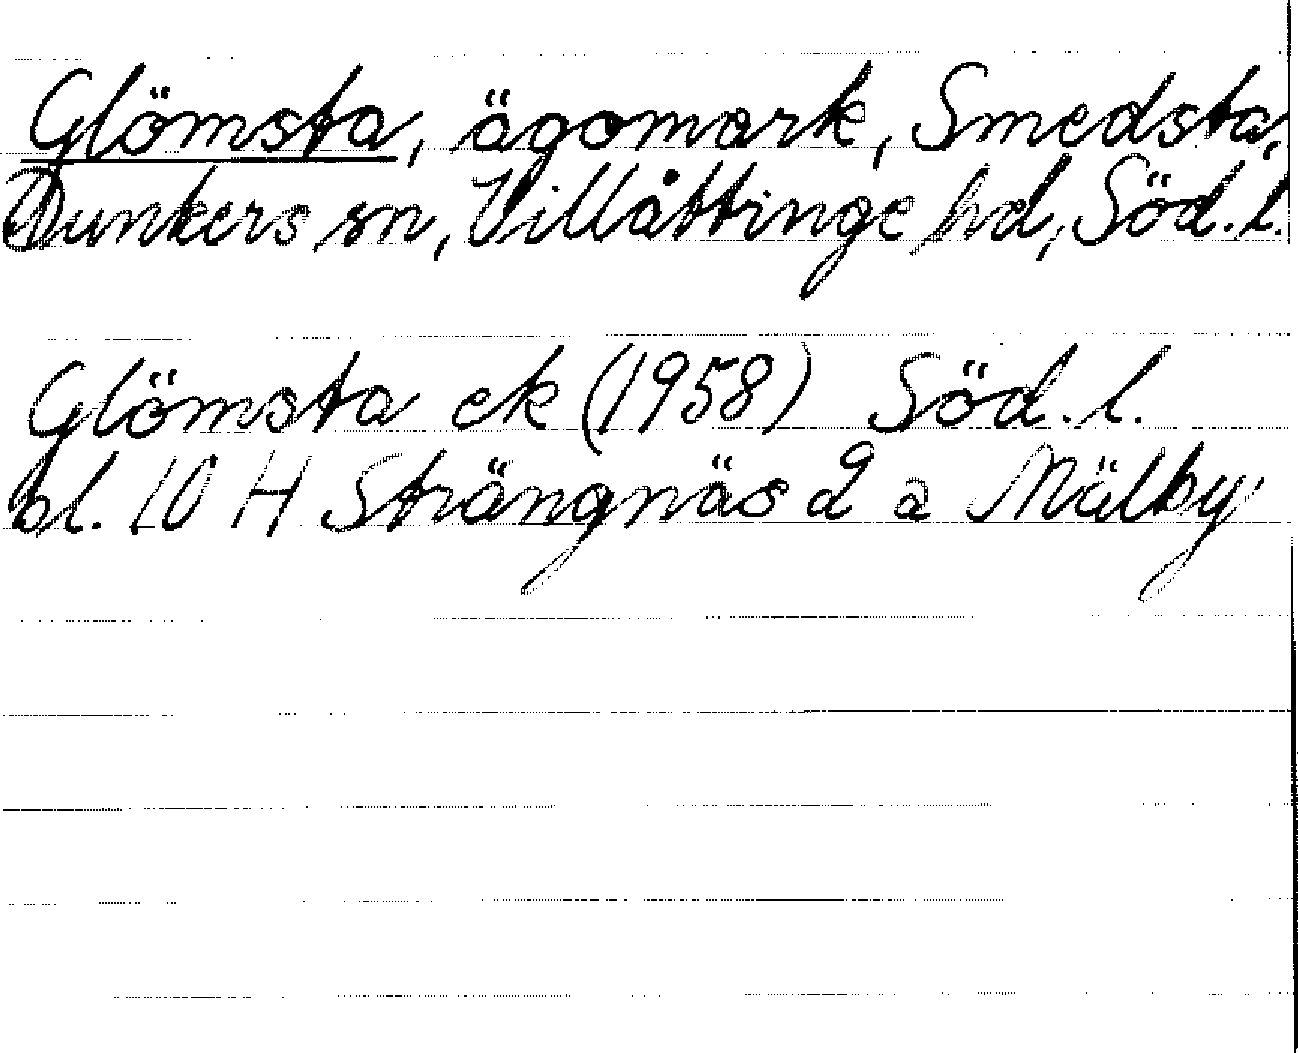 Glömsta, ägomark, Smedsta,
Dunkers sn, Villåttinge hd, Söd. l.
Glömsta ek (1958) Söd. l.
bl. 10 H Strängnäs 2 a Mälby